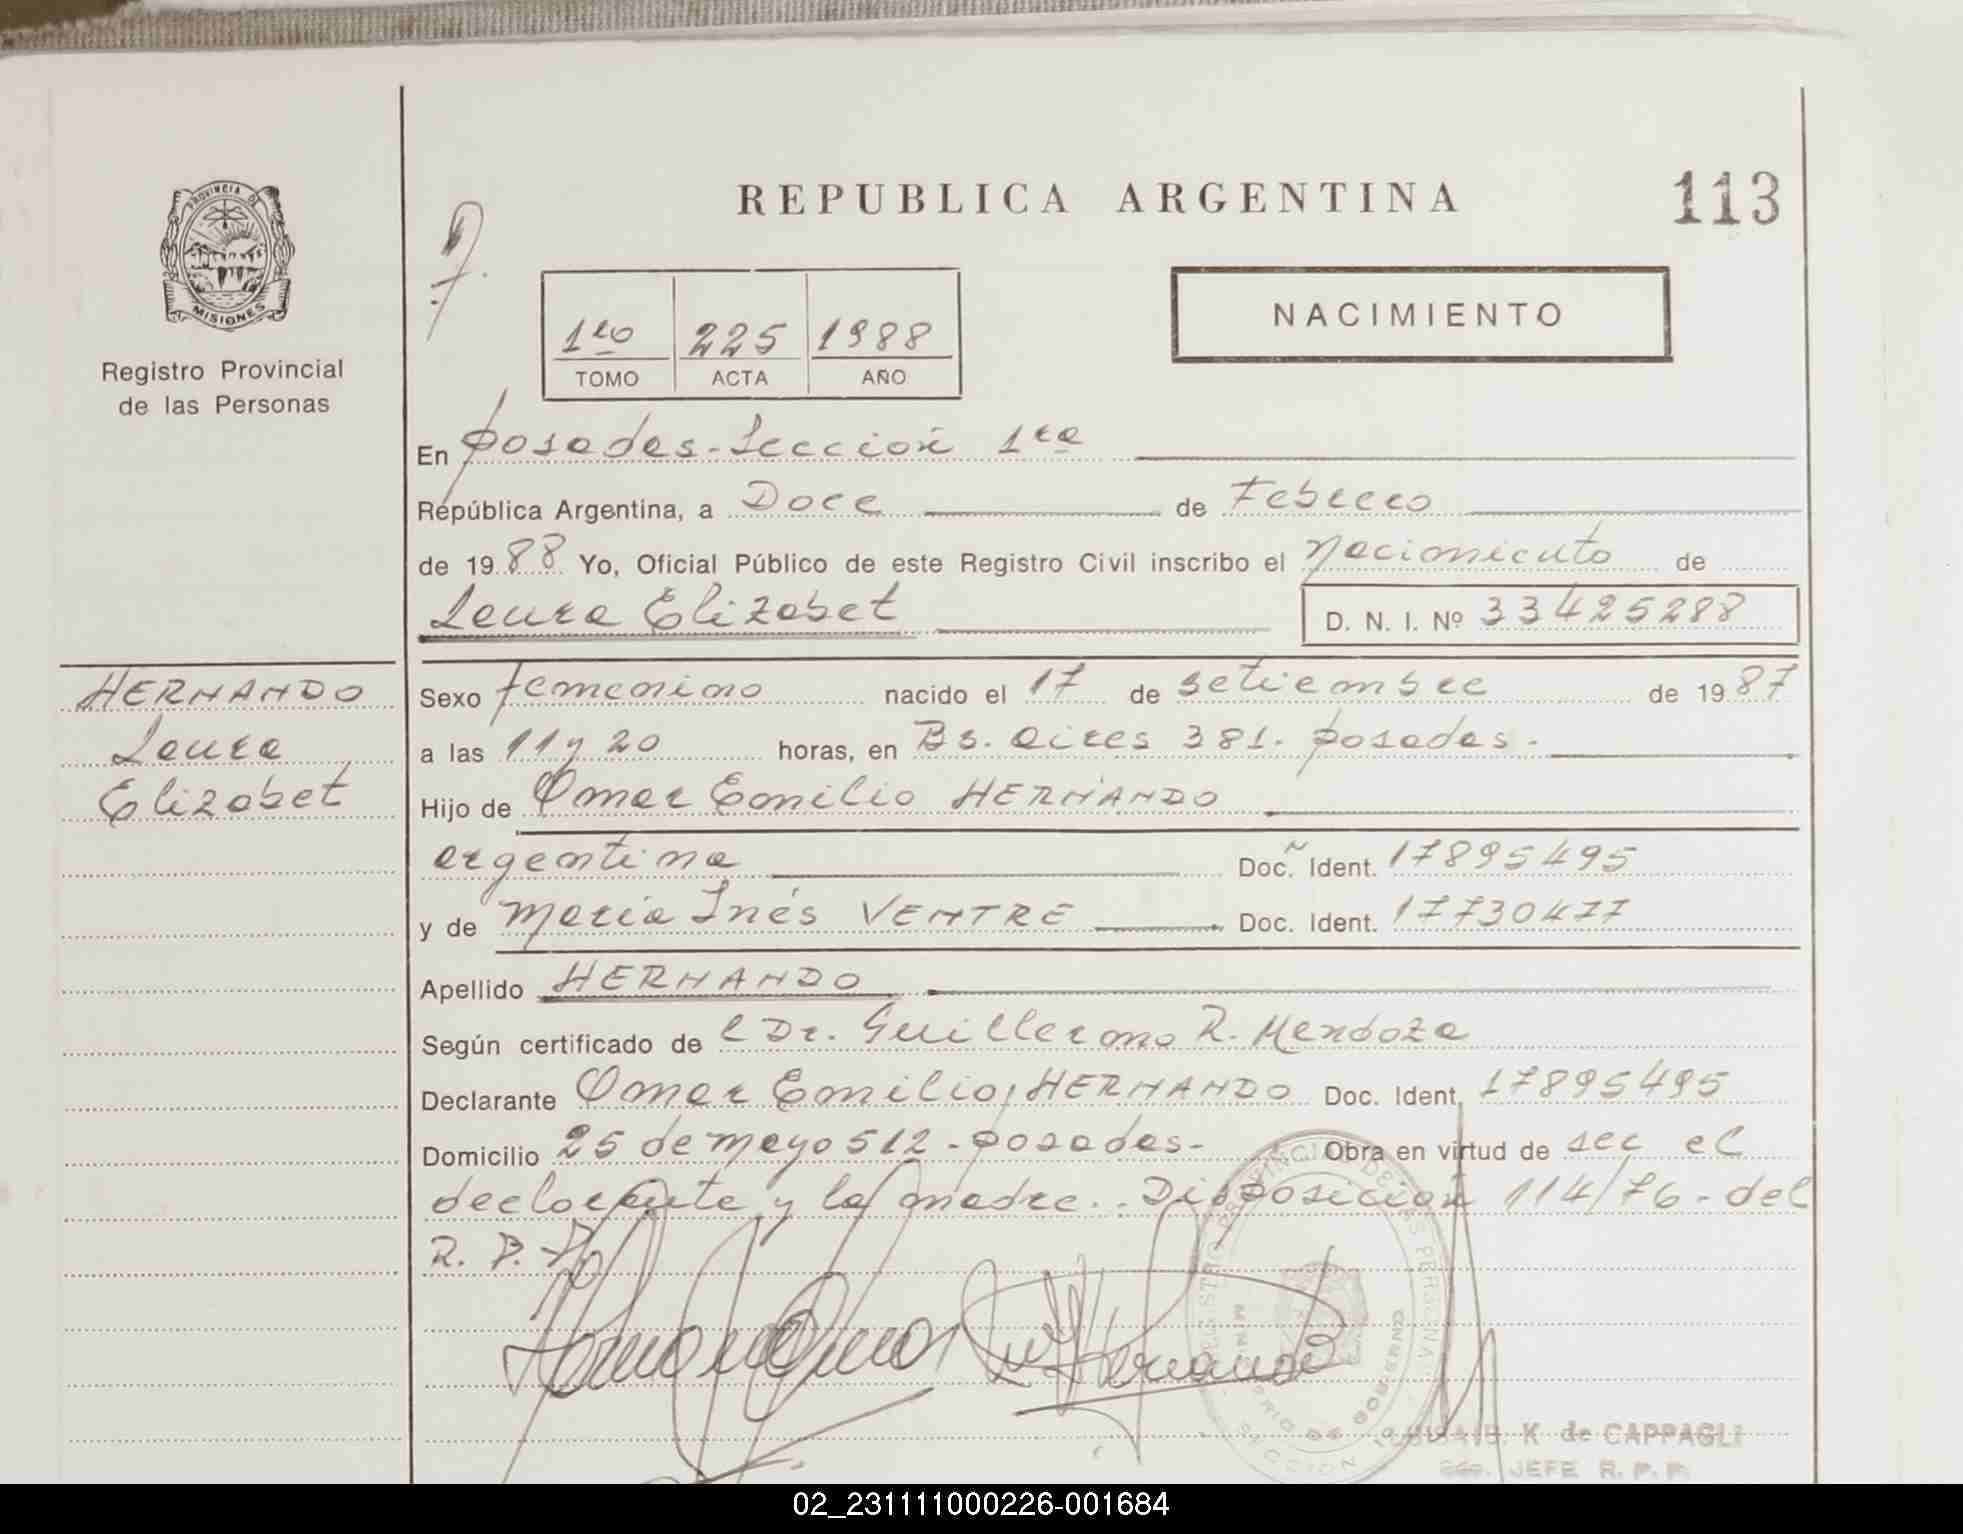 REPUBLICA ARGENTINA
113
PROVINCIA DE
MISIONES
Registro Provincial
de las Personas
NACIMIENTO
1ro 225 1988
TOMO ACTA AÑO
En Posadas-Sección 1ra
República Argentina, a Doce de Febrero
de 1988 Yo, Oficial Público de este Registro Civil inscribo el Nacimiento de
Laura Elizabet D. N. I. Nº 33425288
HERNANDO
Laura
Elizabet
Sexo femenino nacido el 17 de setiembre de 1987
a las 11 y 20 horas, en Bs. Aires 381. Posadas.
Hijo de Omar Emilio HERNANDO
argentina Doc. Ident. 17895495
y de María Inés VENTRE Doc. Ident. 17730477
Apellido HERNANDO
Según certificado de l Dr. Guillermo R. Mendoza
Declarante Omar Emilio HERNANDO Doc. Ident. 17895495
Domicilio 25 de mayo 512-Posadas- Obra en virtud de ser el
declarante y la madre.. Disposición 114/76-del
R. P. P.
K de CAPPAGLI
JEFE R. P. P.
02_231111000226-001684